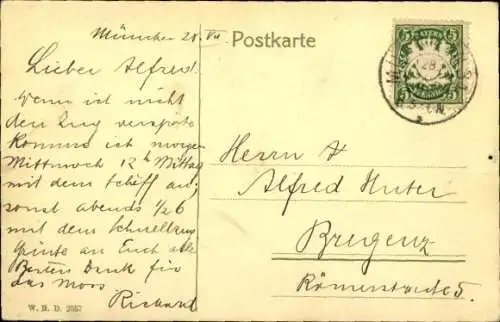 München 28. VII
Postkarte
Lieber Alfred.
Wenn ich nicht
den Zug verspäte
komme ich morgen
Mittwoch 12 h Mittag
mit dem Schiff an,
sonst abends 1/2 6
mit dem Schnellzug
Grüße an Euch alle
Besten Dank für
das Moos
Richard
W. N. D. 2557
BAYERN
5 5
5 5
Herrn
Alfred Huter
Bregenz
Römerstraße 5.